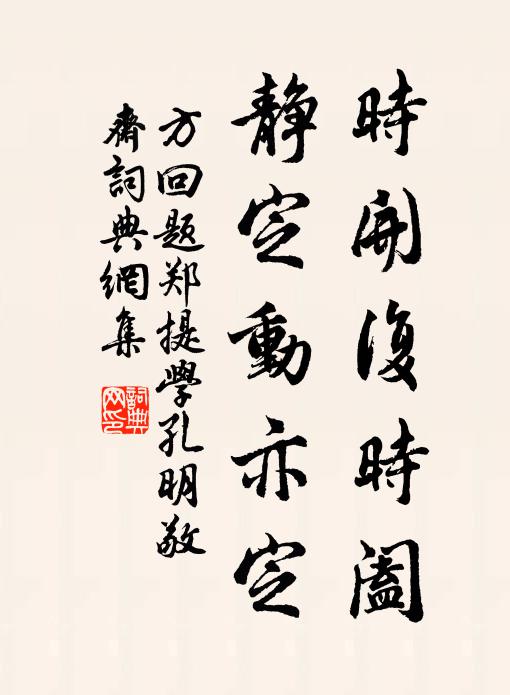 時開復時阖
静定動亦定
方回题郑提學孔明敬
齋詞典網集
詞典
网印